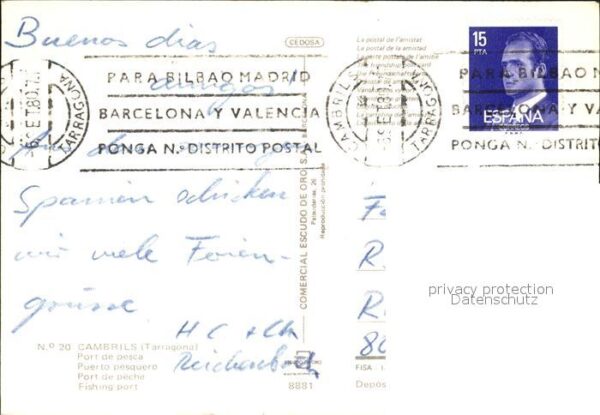 Buenos dias
amigos
Spanien schicken
wir viele Ferien-
grüsse
H C + Ch
Reichenbach
Nº 20 CAMBRILS (Tarragona)
Port de pesca
Puerto pesquero
Port de pêche
Fishing port
CEDOSA
COMERCIAL ESCUDO DE ORO, S.A.
Palaudarias, 26
Reproducción prohibida
8881
La postal de l'amistat
La postal de la amistad
CAMBRILS
TARRAGONA
6 SET. 80
PARA BILBAO MADRID
BARCELONA Y VALENCIA
PONGA N.º DISTRITO POSTAL
15
PTA
ESPAÑA
CORREOS
CAMBRILS
TARRAGONA
PARA BILBAO M
BARCELONA Y
PONGA N.º DISTRITO
F
R
R
80
privacy protection
Datenschutz
FISA
Depós